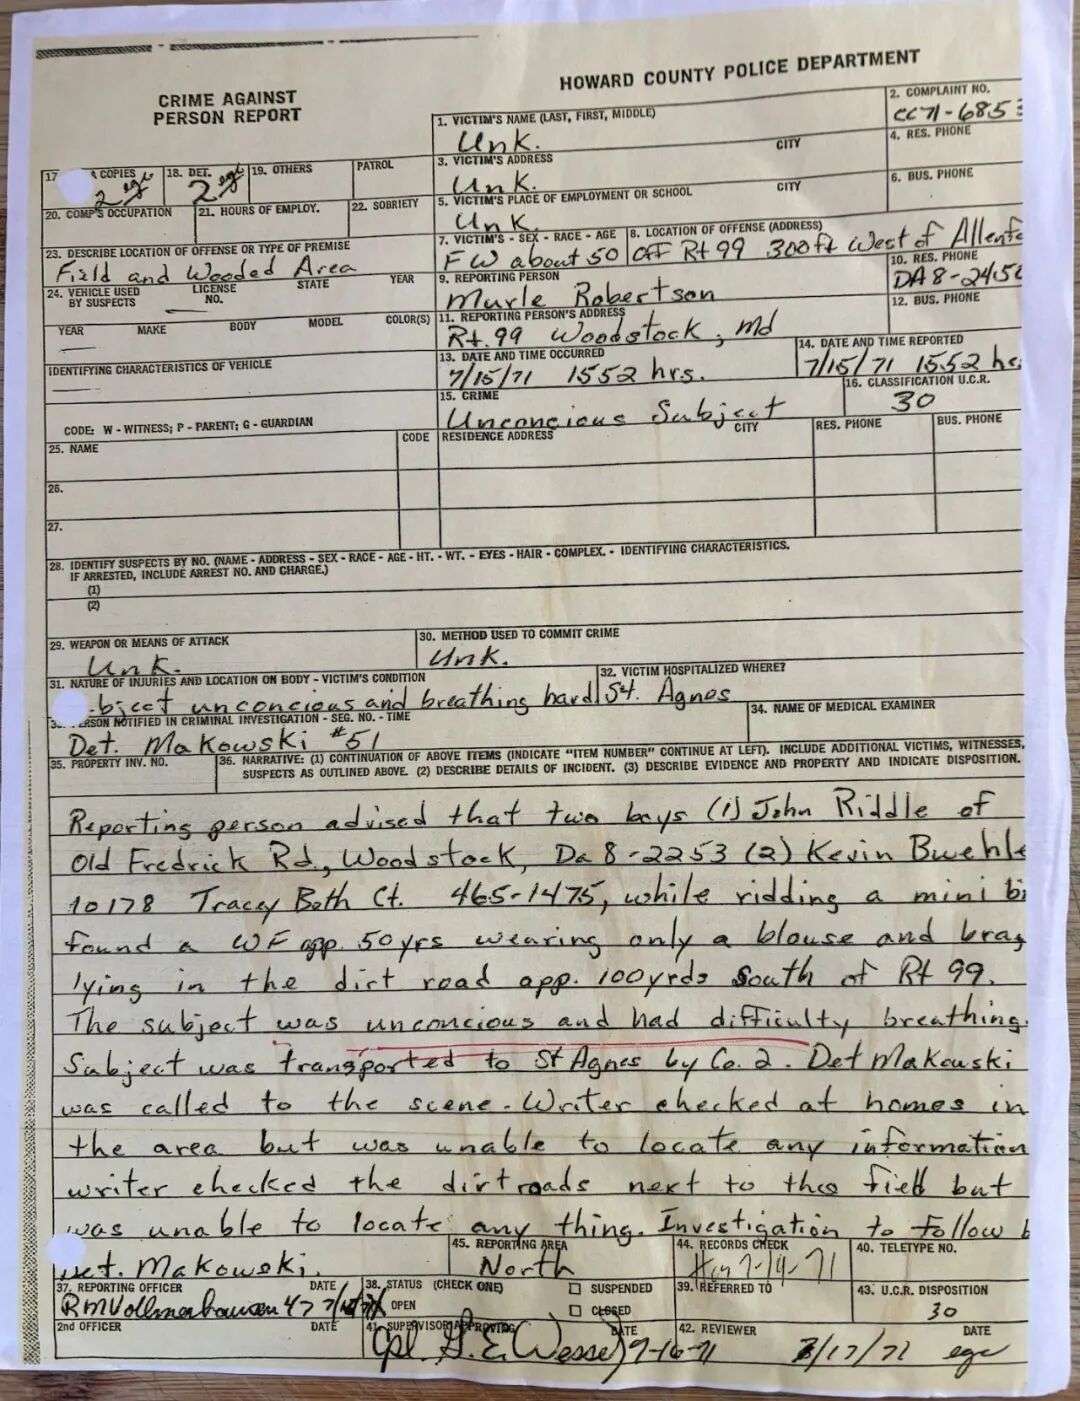 HOWARD COUNTY POLICE DEPARTMENT
CRIME AGAINST
PERSON REPORT
1. VICTIM'S NAME (LAST, FIRST, MIDDLE)
Unk.
2. COMPLAINT NO.
CC71-685
3. VICTIM'S ADDRESS CITY
Unk.
4. RES. PHONE
17 COPIES
2
18. DET.
2
19. OTHERS
PATROL
5. VICTIM'S PLACE OF EMPLOYMENT OR SCHOOL CITY
Unk.
6. BUS. PHONE
20. COMP'S OCCUPATION
21. HOURS OF EMPLOY.
22. SOBRIETY
7. VICTIM'S - SEX - RACE - AGE
F W about 50
8. LOCATION OF OFFENSE (ADDRESS)
Off Rt 99 300ft West of
23. DESCRIBE LOCATION OF OFFENSE OR TYPE OF PREMISE
Field and Wooded Area
9. REPORTING PERSON
Murle Robertson
10. RES. PHONE
DA8-245
24. VEHICLE USED
BY SUSPECTS
LICENSE
NO.
STATE
YEAR
11. REPORTING PERSON'S ADDRESS
Rt. 99 Woodstock, Md
12. BUS. PHONE
YEAR MAKE BODY MODEL COLOR(S)
13. DATE AND TIME OCCURRED
7/15/71 1552 hrs.
14. DATE AND TIME REPORTED
7/15/71 1552
IDENTIFYING CHARACTERISTICS OF VEHICLE
15. CRIME
Unconcious Subject
16. CLASSIFICATION U.C.R.
30
CODE: W - WITNESS; P - PARENT; G - GUARDIAN
25. NAME
CODE
RESIDENCE ADDRESS CITY
RES. PHONE
BUS. PHONE
26.
27.
28. IDENTIFY SUSPECTS BY NO. (NAME - ADDRESS - SEX - RACE - AGE - HT. - WT. - EYES - HAIR - COMPLEX. - IDENTIFYING CHARACTERISTICS.
IF ARRESTED, INCLUDE ARREST NO. AND CHARGE.)
(1)
(2)
29. WEAPON OR MEANS OF ATTACK
Unk.
30. METHOD USED TO COMMIT CRIME
Unk.
31. NATURE OF INJURIES AND LOCATION ON BODY - VICTIM'S CONDITION
bject unconcious and breathing hard
32. VICTIM HOSPITALIZED WHERE?
St. Agnes
3 ERSON NOTIFIED IN CRIMINAL INVESTIGATION - SEG. NO. - TIME
Det. Makowski #51
34. NAME OF MEDICAL EXAMINER
35. PROPERTY INV. NO.
36. NARRATIVE: (1) CONTINUATION OF ABOVE ITEMS (INDICATE "ITEM NUMBER" CONTINUE AT LEFT). INCLUDE ADDITIONAL VICTIMS, WITNESSES,
SUSPECTS AS OUTLINED ABOVE. (2) DESCRIBE DETAILS OF INCIDENT. (3) DESCRIBE EVIDENCE AND PROPERTY AND INDICATE DISPOSITION.
Reporting person advised that two boys (1) John Riddle of
Old Fredrick Rd., Woodstock, Da 8-2253 (2) Kevin
10178 Tracey Beth Ct. 465-1475, while ridding a mini bi
found a WF app. 50yrs wearing only a blouse and
lying in the dirt road app. 100yrds South of Rt 99.
The subject was unconcious and had difficulty breathing.
Subject was transported to St Agnes by Co. 2. Det Makowski
was called to the scene. Writer checked at homes in
the area but was unable to locate any information
writer checked the dirt roads next to the field but
was unable to locate any thing. Investigation to follow b
Det. Makowski.
45. REPORTING AREA
North
44. RECORDS CHECK
40. TELETYPE NO.
37. REPORTING OFFICER DATE
38. STATUS (CHECK ONE)
OPEN
SUSPENDED
CLOSED
39. REFERRED TO
43. U.C.R. DISPOSITION
30
2nd OFFICER DATE
41. SUPERVISOR APPROVING DATE
Cpl. G. E. Wessel 7-16-71
42. REVIEWER DATE